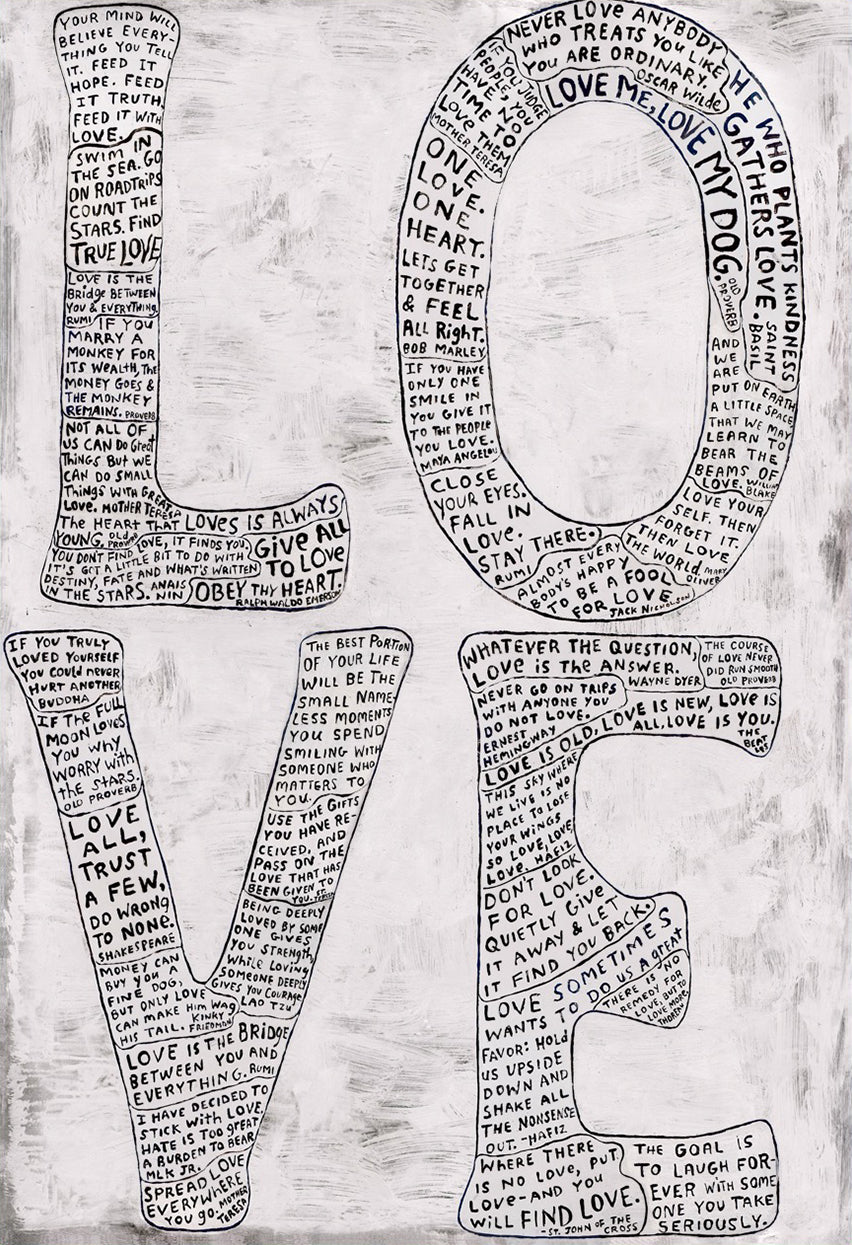 YOUR MIND WILL
BELIEVE EVERY-
THING YOU TELL
IT. FEED IT
HOPE. FEED
IT TRUTH.
FEED IT WITH
LOVE.
SWIM IN
THE SEA. GO
ON ROADTRIPS
COUNT THE
STARS. FIND
TRUE LOVE
LOVE IS THE
BRidgE BETWEEN
YOU & EVERYTHING.
RUMI
IF YOU
MARRY A
MONKEY FOR
ITS WEALTH, THE
MONEY GOES &
THE MONKEY
REMAINS. PROVERB
NOT ALL OF
US CAN DO GREAT
THINGS BUT WE
CAN DO SMALL
THINGS WITH GREAT
LOVE. MOTHER TERESA
THE HEART THAT LOVES IS ALWAYS
YOUNG. OLD PROVERB
LOVE, IT FINDS YOU,
YOU DON'T FIND
IT'S GOT A LITTLE BIT TO DO WITH
DESTINY, FATE AND WHAT'S WRITTEN
IN THE STARS. ANAIS
NIN
GIVE ALL
TO LOVE
OBEY THY HEART.
RALPH WALDO EMERSON
NEVER LOVE ANYBODY
WHO TREATS YOU LIKE
YOU ARE ORDINARY.
OSCAR WILDE
IF YOU JUDGE
PEOPLE, YOU
HAVE NO
TIME TO
LOVE THEM
MOTHER TERESA
LOVE ME, LOVE MY DOG.
OLD
PROVERB
HE WHO PLANTS KINDNESS
GATHERS LOVE.
SAINT
BASIL
ONE
LOVE.
ONE
HEART.
LETS GET
TOGETHER
& FEEL
ALL RIGHT.
BOB MARLEY
IF YOU HAVE
ONLY ONE
SMILE IN
YOU GIVE IT
TO THE PEOPLE
YOU LOVE.
MAYA ANGELOU
CLOSE
YOUR EYES.
FALL IN
LOVE.
STAY THERE.
RUMI
AND
WE
ARE
PUT ON EARTH
A LITTLE SPACE
THAT WE MAY
LEARN TO
BEAR THE
BEAMS OF
LOVE. WILLIAM
BLAKE
LOVE YOUR
SELF. THEN
FORGET IT.
THEN LOVE
THE WORLD. MARY
OLIVER
ALMOST EVERY
BODY'S HAPPY
TO BE A FOOL
FOR LOVE.
JACK NICHOLSON
IF YOU TRULY
LOVED YOURSELF
YOU COULD NEVER
HURT ANOTHER
BUDDHA
IF THE FULL
MOON LOVES
YOU WHY
WORRY WITH
THE STARS.
OLD PROVERB
LOVE
ALL,
TRUST
A FEW,
DO WRONG
TO NONE.
SHAKESPEARE
MONEY CAN
BUY YOU A
FINE DOG,
BUT ONLY LOVE
CAN MAKE HIM WAG
HIS TAIL. KINKY
FRIEDMAN
THE BEST PORTION
OF YOUR LIFE
WILL BE THE
SMALL NAME-
LESS MOMENTS
YOU SPEND
SMILING WITH
SOMEONE WHO
MATTERS TO
YOU.
USE THE GIFTS
YOU HAVE RE-
CEIVED, AND
PASS ON THE
LOVE THAT HAS
BEEN GIVEN TO
YOU. ST.
BEING DEEPLY
LOVED BY SOME
ONE GIVES
YOU STRENGTH,
WHILE LOVING
SOMEONE DEEPLY
GIVES YOU COURAGE
LAO TZU
LOVE IS THE BRIDGE
BETWEEN YOU AND
EVERYTHING. RUMI
I HAVE DECIDED TO
STICK WITH LOVE.
HATE IS TOO GREAT
A BURDEN TO BEAR
MLK JR.
SPREAD LOVE
EVERYWHERE
YOU GO. MOTHER
TERESA
WHATEVER THE QUESTION,
LOVE IS THE ANSWER.
WAYNE DYER
THE COURSE
OF LOVE NEVER
DID RUN SMOOTH
OLD PROVERB
NEVER GO ON TRIPS
WITH ANYONE YOU
DO NOT LOVE.
ERNEST
HEMINGWAY
LOVE IS OLD, LOVE IS NEW, LOVE IS
ALL, LOVE IS YOU.
THE
BEATLES
THIS SKY WHERE
WE LIVE IS NO
PLACE TO LOSE
YOUR WINGS
SO LOVE, LOVE,
LOVE. HAFIZ
DON'T LOOK
FOR LOVE.
QUIETLY GIVE
IT AWAY & LET
IT FIND YOU BACK.
LOVE SOMETIMES
WANTS TO DO US A GREAT
FAVOR: HOLD
US UPSIDE
DOWN AND
SHAKE ALL
THE NONSENSE
OUT. -HAFIZ
THERE IS NO
REMEDY FOR
LOVE, BUT TO
LOVE MORE.
THOREAU
WHERE THERE
IS NO LOVE, PUT
LOVE-AND YOU
WILL FIND LOVE.
-ST. JOHN OF THE
CROSS
THE GOAL IS
TO LAUGH FOR-
EVER WITH SOME
ONE YOU TAKE
SERIOUSLY.